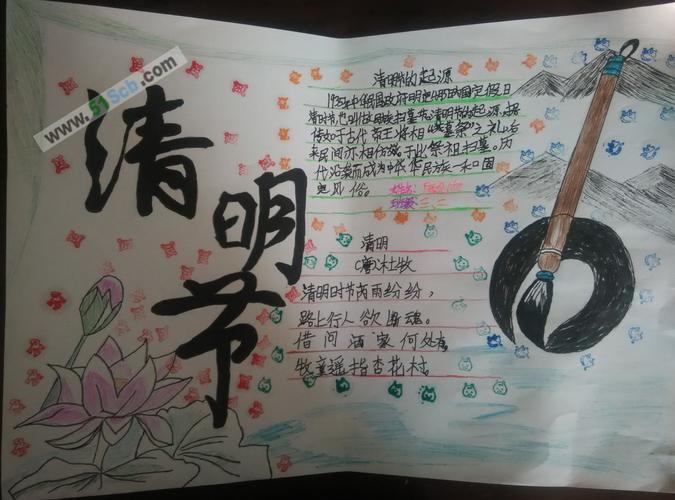 www.51Scb.com
清明节
清明节的起源
1935年中华民国政府明定4月5日为国定假日
清明节,也叫做民族扫墓节。清明节的起源,据
传始于古代帝王将相“墓祭”之礼,后
来民间亦相仿效于此祭祖扫墓。历
代沿袭而成为中华民族一种固
定风俗。
姓名:
班级:三、二
清明
(唐)杜牧
清明时节雨纷纷,
路上行人欲断魂。
借问酒家何处有
牧童遥指杏花村